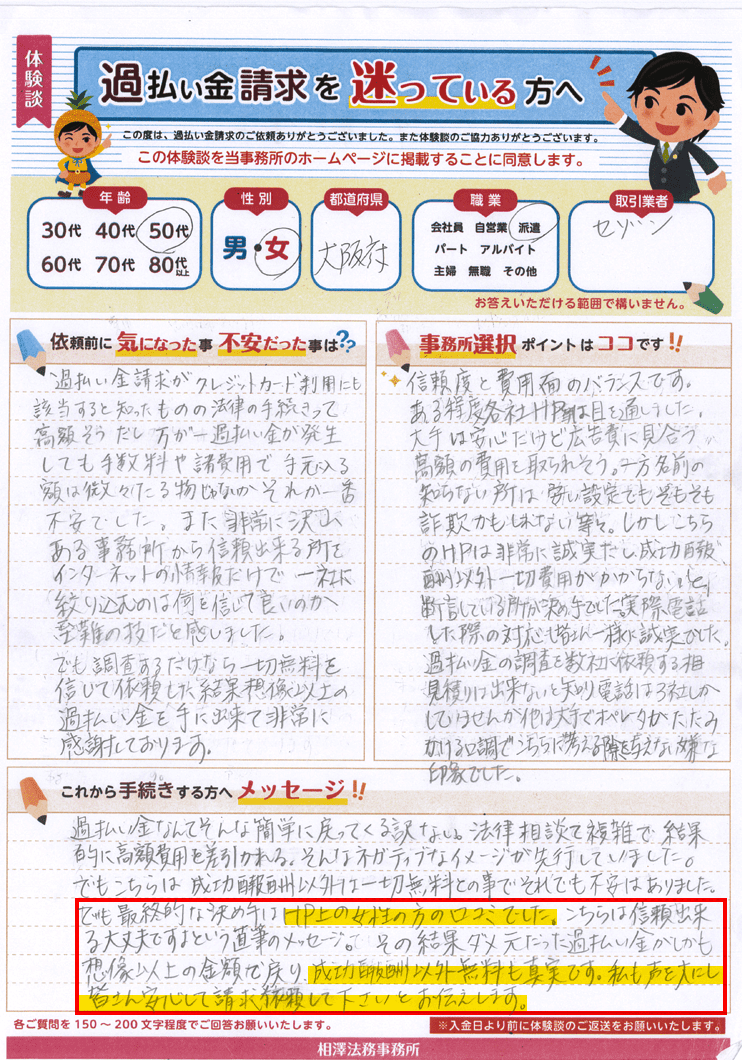 体験談
過払い金請求を迷っている方へ
この度は、過払い金請求のご依頼ありがとうございました。また体験談のご協力ありがとうございます。
この体験談を当事務所のホームページに掲載することに同意します。
年齢
30代 40代 50代
60代 70代 80代以上
性別
男・女
都道府県
大阪府
職業
会社員 自営業 派遣
パート アルバイト
主婦 無職 その他
取引業者
セゾン
お答えいただける範囲で構いません。
依頼前に気になった事 不安だった事は??
過払い金請求がクレジットカード利用にも
該当すると知ったものの法律の手続きって
高額そうだし万が一過払い金が発生
しても手数料や諸費用で手元に入る
額は微々たる物じゃないのかそれが一番
不安でした。また非常に沢山
ある事務所から信頼出来る所を
インターネットの情報だけで一社に
絞り込むのは何を信じて良いのか
至難の技だと感じました。
でも調査するだけなら一切無料を
信じて依頼した結果想像以上の
過払い金を手に出来て非常に
感謝しております。
事務所選択ポイントはココです!!
信頼度と費用面のバランスです。
ある程度各社HPは目を通しました。
大手は安心だけど広告費に見合う
高額の費用を取られそう。一方名前の
知らない所は安い設定でもそもそも
詐欺かもしれない等々。しかしこちら
のHPは非常に誠実だし成功報
酬以外一切費用がかからない。と
断言している所が決め手でした。実際電話
した際の対応も皆さん一様に誠実でした。
過払い金の調査を数社に依頼する相
見積りは出来ないと知り電話は3社しか
していませんが他は大手でオペレータがたたみ
かける口調でこちらに考える隙を与えない嫌な
印象でした。
これから手続きする方へメッセージ!!
過払い金なんてそんな簡単に戻ってくる訳ない。法律相談て複雑で結果
的に高額費用を差引かれる。そんなネガティブなイメージが先行していました。
でもこちらは成功報酬以外は一切無料との事でそれでも不安はありました。
でも最終的な決め手はHP上の女性の方の口コミでした。こちらは信頼出来
る大丈夫ですよという直筆のメッセージ。その結果ダメ元だった過払い金がしかも
想像以上の金額で戻り、成功報酬以外無料も真実です。私も声を大にし
皆さん安心して請求依頼して下さいとお伝えします。
各ご質問を150〜200文字程度でご回答お願いいたします。
※入金日より前に体験談のご返送をお願いいたします。
相澤法務事務所